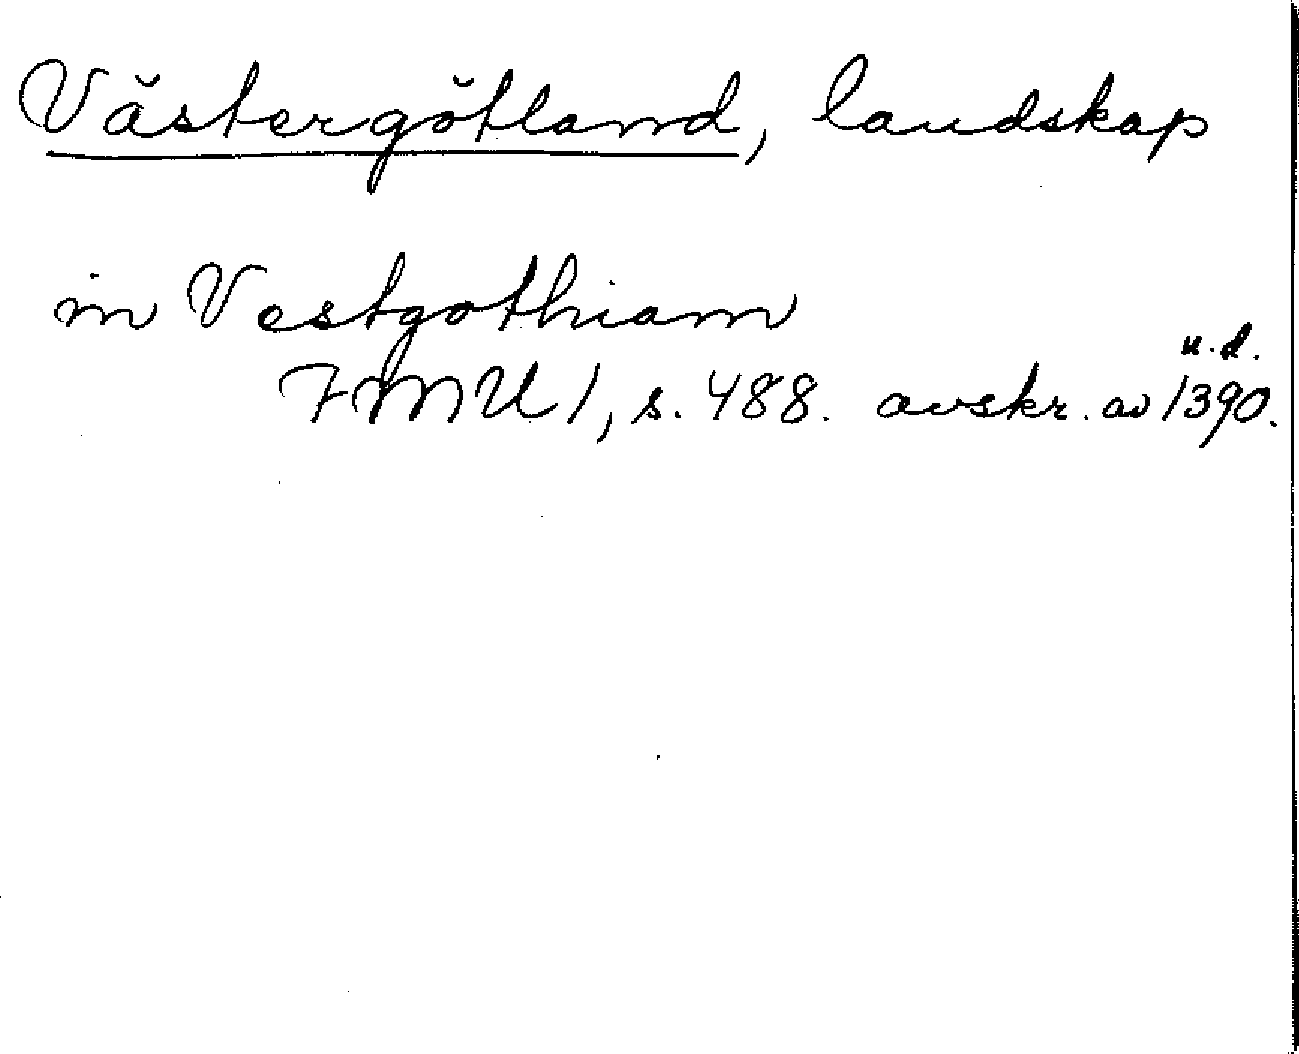 Västergötland, landskap
in Vestgothiam
u.d.
FMU 1, s. 488. avskr. av 1390.